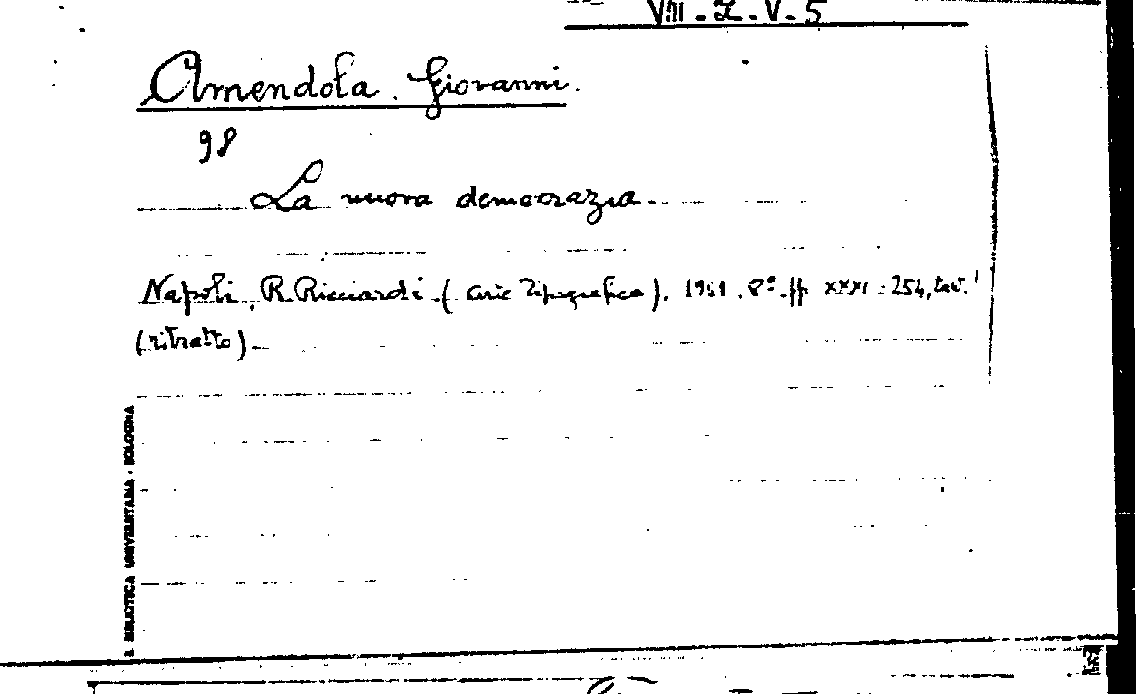 VIII. Z. V. 5
Amendola. Giovanni.
98
La nuova democrazia.
Napoli, R. Ricciardi. ( Tipografica). 1951. 8º. pp XXXI. 254, tav. 1
(ritratto).
R. BIBLIOTECA UNIVERSITARIA - BOLOGNA